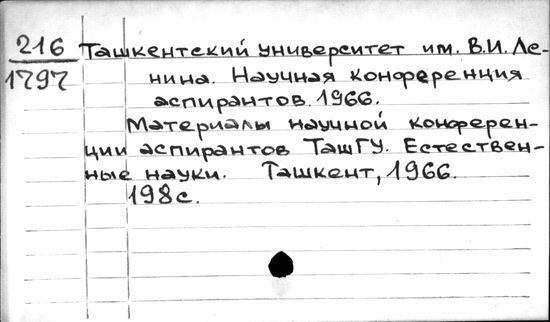 216 Ташкентский университет им. В.И. Ле-
1797 нина. Научная конференция
аспирантов. 1966.
Материалы научной конферен-
ции аспирантов ТашГУ. Естествен-
ные науки. Ташкент, 1966.
198 с.